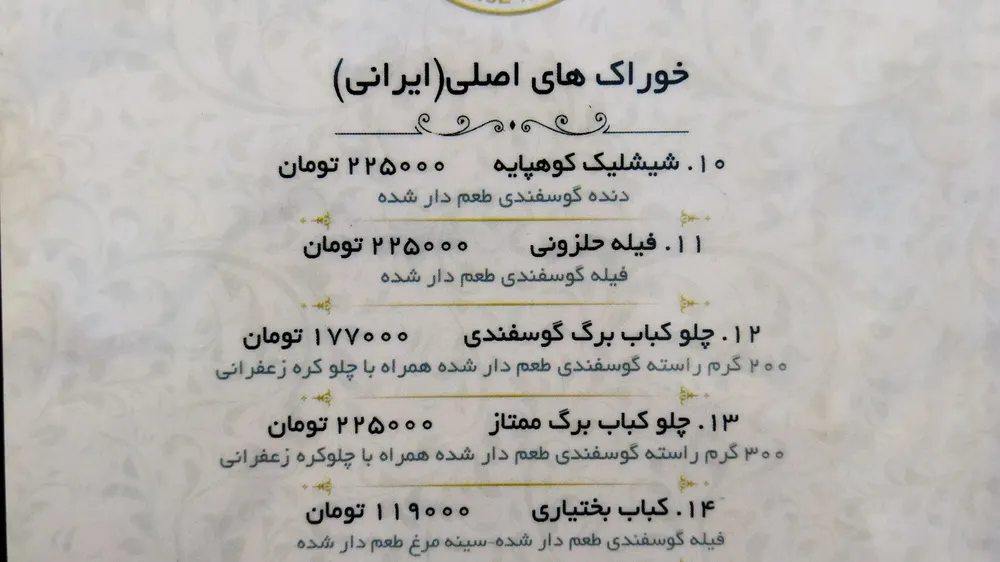 خوراک های اصلی(ایرانی)
۱۰. شیشلیک کوهپایه ۲۲۵۰۰۰ تومان
دنده گوسفندی طعم دار شده
۱۱. فیله حلزونی ۲۲۵۰۰۰ تومان
فیله گوسفندی طعم دار شده
۱۲. چلو کباب برگ گوسفندی ۱۷۷۰۰۰ تومان
۲۰۰ گرم راسته گوسفندی طعم دار شده همراه با چلو کره زعفرانی
۱۳. چلو کباب برگ ممتاز ۲۲۵۰۰۰ تومان
۳۰۰ گرم راسته گوسفندی طعم دار شده همراه با چلوکره زعفرانی
۱۴. کباب بختیاری ۱۱۹۰۰۰ تومان
فیله گوسفندی طعم دار شده-سینه مرغ طعم دار شده